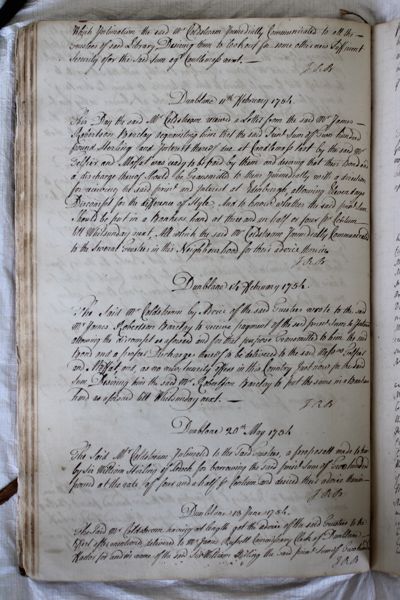 Which Intimation the said Mr Coldstream Immediatly Communicated to all the
trustees of said Library, Desiring them to look out for some other new Sufficient
Security for the said Sum agt Candlemass next. —
J.R.B
Dunblane 11th February 1754.
This Day the said Mr Coldstream received a Letter from the said Mr James
Robertson Barclay acquainting him that the said Sum of Two hundred
pound Sterling and Interest thereof due at Candlemass last by the said Mr
and Moffat was ready to be paid by them and desiring that their Bond and
a discharge thereof should be transmitted to them Immediatly with a direction
for receiving the said prinll and interest at Edinburgh, allowing Eleven days
Discompt for the difference of Style, And to know whether the said prinll Sum
should be put in a Bankers hand at three and an half or four pr Centum
till Whitsunday next, All which the said Mr Coldstream Immediatly Communicated
to the Several Trustees in this Neighbourhood for their advice therein
J.R.B
Dunblane February 1754.
The Said Mr Coldstream by Advice of the said Trustees wrote to the said
Mr James Robertson Barclay to receive payment of the said prinll Sum & Interest
allowing the discompt as aforesaid and for that purpose transmitted to him the said
Bond and a proper Discharge thereof to be delivered to the said Messrs
and Moffat, and, as no other security offers in this Country just now for the said
Sum, Desiring him the said Mr Robertson Barclay to put the same in a Bankers
hand as aforesaid till Whitsunday next. —
J.R.B
Dunblane 20th May 1754.
The Said Mr Coldstream Intimated to the said Trustees, a proposall made to him
by Sir William Stirling of Ardoch for borrowing the said prinll Sum of Two hundred
pound at the rate of four and a half pr Centum and desired their advice therein —
J.R.B
Dunblane 13 June 1754.
The Said Mr Coldstream having at length got the advice of the said Trustees to the
Effect aftermentioned, delivered to Mr James Russell Commissary Clerk of Dunblane
Factor for and in name of the said Sir William Stirling the said prinll Sum of Two hundred
J.R.B